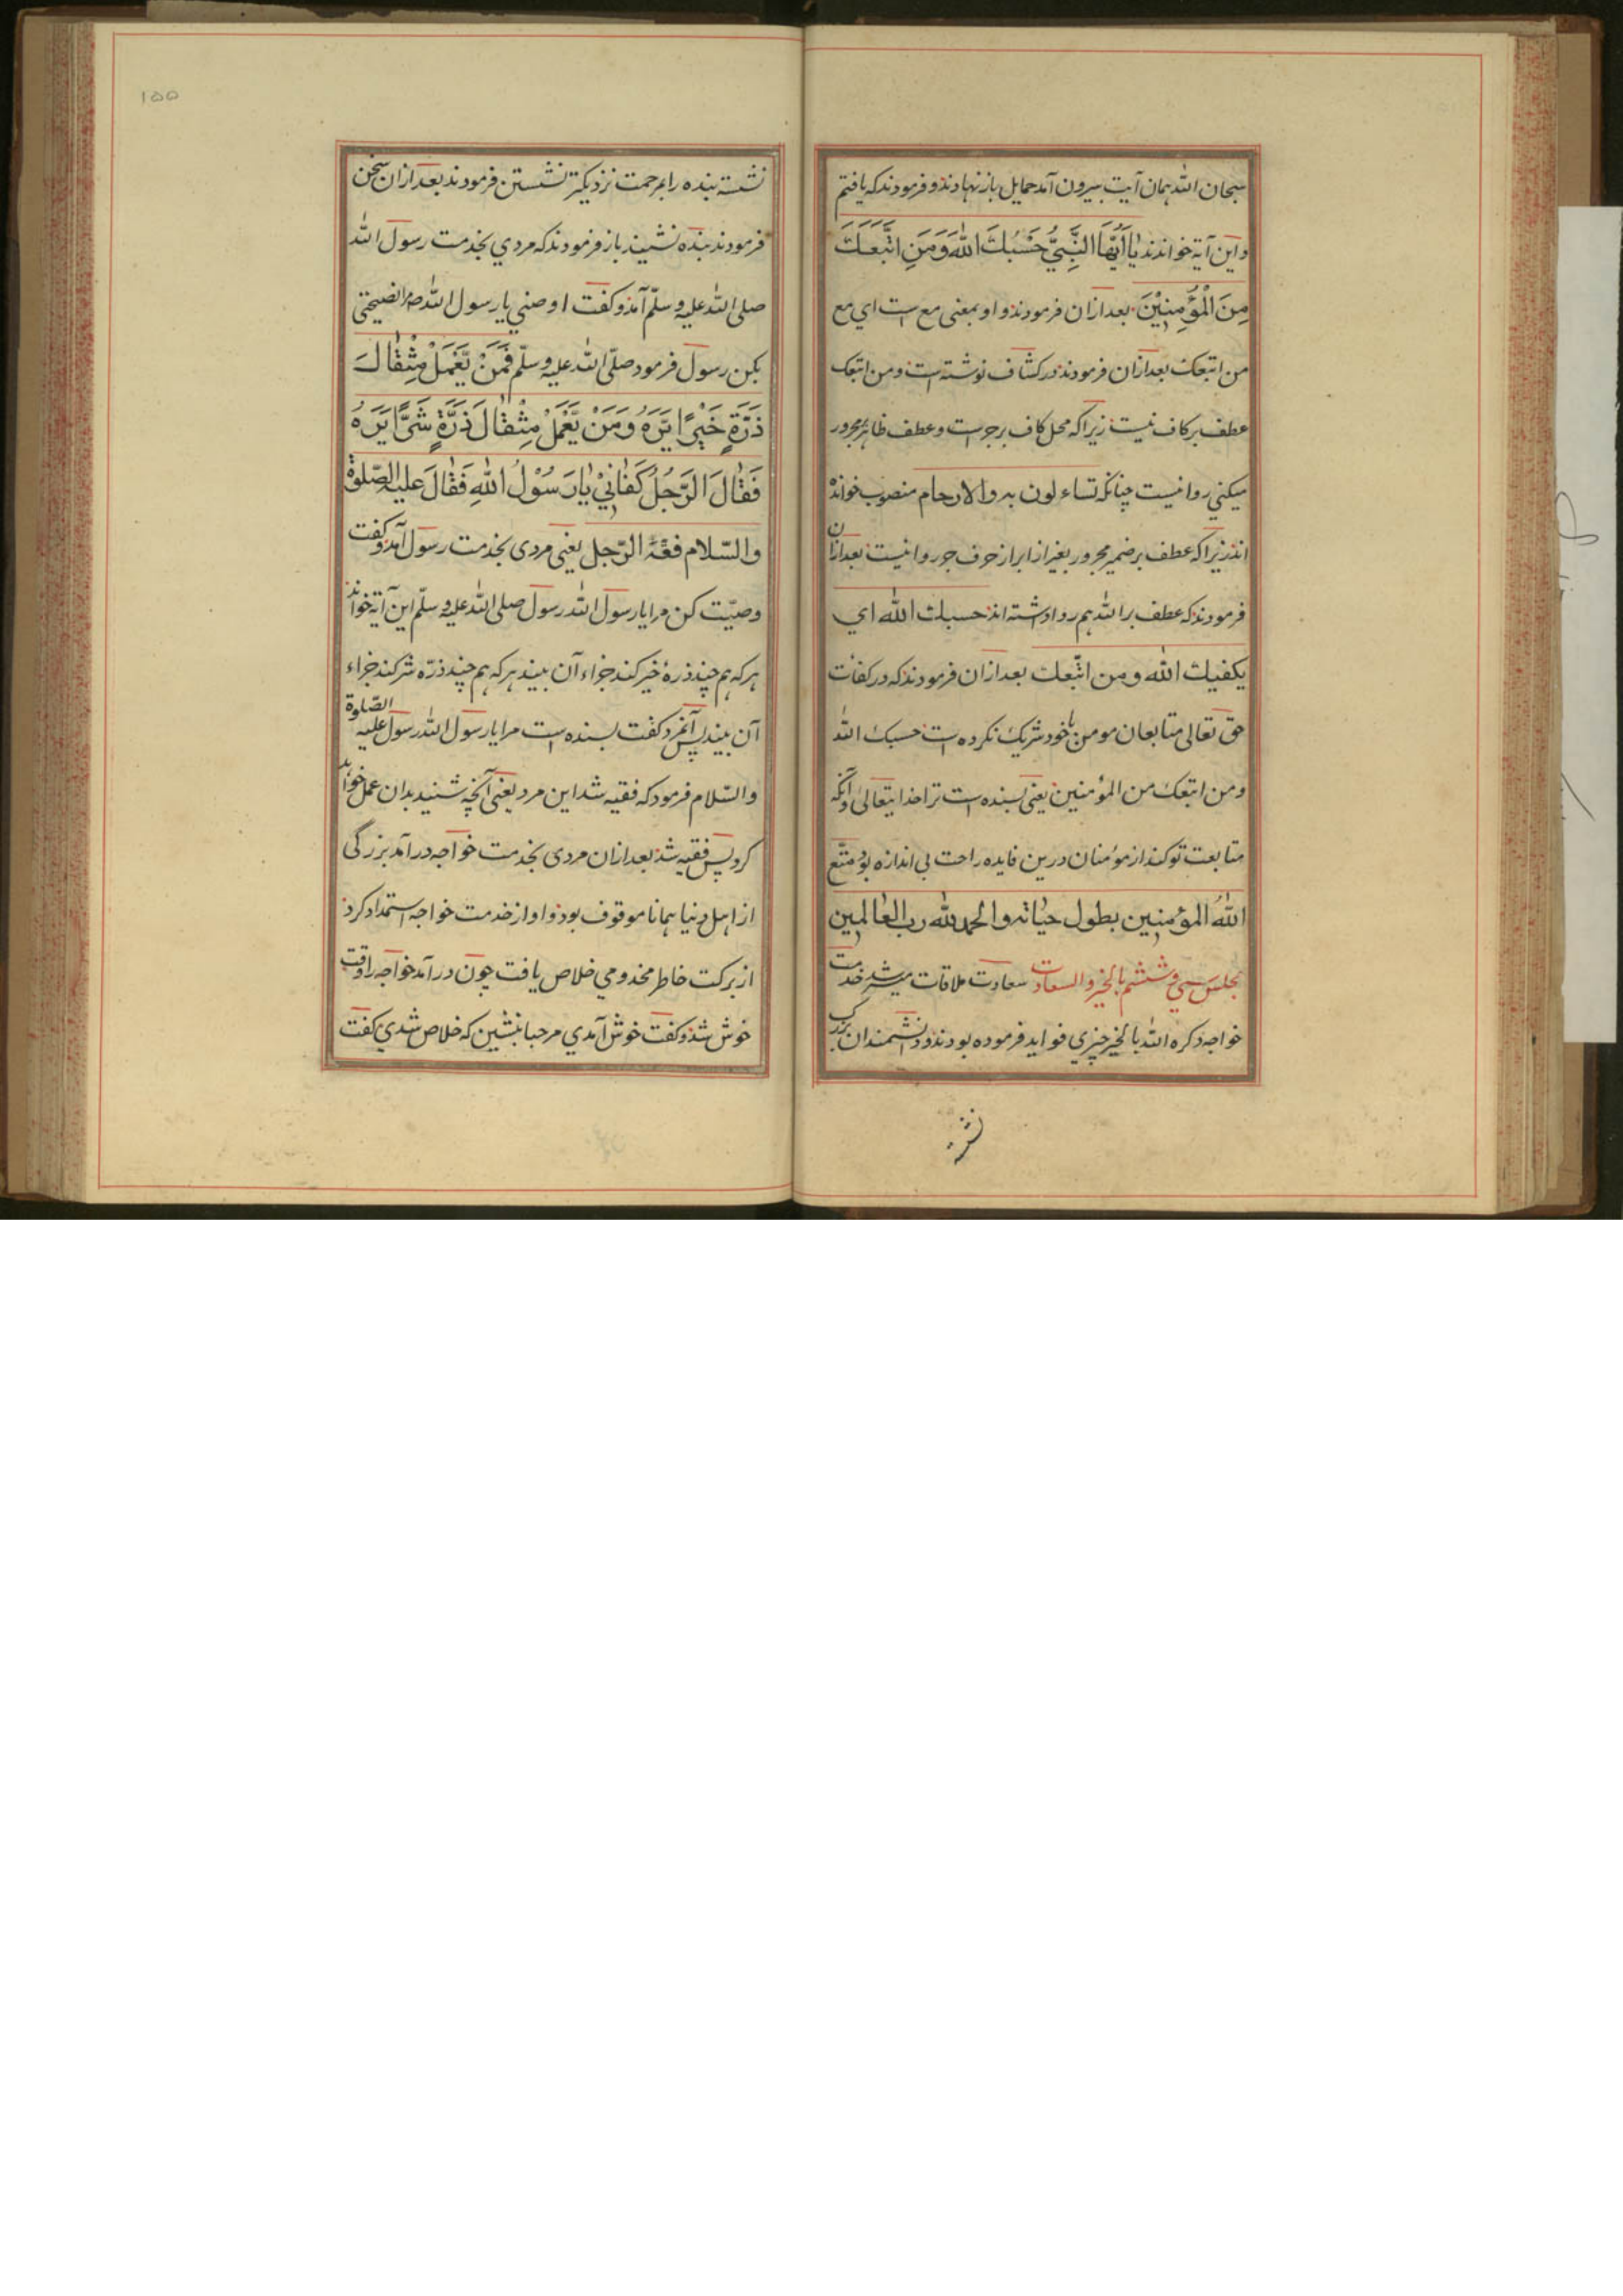 سبحان الله همان آیت بیرون آمد حمایل باز نهادند و فرمودند که یافتم
و این آیة خواندند یَا اَیُّهَا النَّبِیُّ حَسْبُكَ اللهَ وَمَنِ اتَّبَعَكَ
مِنَ الْمُؤْمِنِیْنَ بعد ازان فرمودند و او بمعنی مع است ای مع
من اتبعک بعد ازان فرمودند در کشاف نوشته است و من اتبعک
عطف بر کاف نیست زیراکه محل کاف بر جر است و عطف ظاهر بر مجرور
میکنی روا نیست چنانکه تساءلون به والارحام منصوب خوانده
اند زیراکه عطف بر ضمیر مجرور بغیر از ابراز حرف جر روا نیست بعد ازان
فرمودند که عطف بر الله هم روا داشته اند حسبك الله ای
یکفیك الله ومن اتّبعك بعد ازان فرمودند که در کفات
حق تعالی متابعان مومن با خود شریک نکرده است حسبک الله
ومن اتبعک من المؤمنین یعنی بسنده است ترا خدایتعالی و آنکه
متابعت تو کند از مومنان درین فایده راحت بی اندازه بود متّع
اللهُ المؤمنین بطول حیاته والحمد لله رب العالمین
مجلس سی و ششم بالخیر و السعادت سعادت ملاقات میسر شد خدمت
خواجه ذکره الله بالخیر چیزی فواید فرموده بودند و دانشمندان بزرگ
نشـ
۱۵۵
نشسته بنده را بمرحمت نزدیکتر نشستن فرمودند بعد ازان سخن
فرمودند بنده نشیند باز فرمودند که مردی بخدمت رسول الله
صلی الله علیه وسلّم آمد و گفت اوصنی یا رسول الله مرا نصیحتی
بکن رسول فرمود صلّی الله علیه وسلّم فَمَنْ یَّعْمَلْ مِثْقَالَ
ذَرَّةٍ خَیْرًا یَّرَهُ وَمَنْ یَّعْمَلْ مِثْقَالَ ذَرَّةٍ شَرًّا یَرَهُ
فَقَالَ الرَّجُلُ کَفَانِیْ یَارَسُوْلُ اللهِ فَقَالَ علیه الصّلوة
والسّلام فقه الرّجل یعنی مردی بخدمت رسول آمد و گفت
وصیّت کن مرا یا رسول الله رسول صلی الله علیه وسلّم این آیة خواند
هرکه هم چند ذرهٔ خیر کند جزاء آن بیند هرکه هم چند ذرّه شر کند جزاء
آن بیند پس آنمرد گفت بسنده است مرا یا رسول الله رسول علیه الصّلوة
والسّلام فرمود که فقیه شد این مرد یعنی آنچه شنید بدان عمل خواهد
کرد پس فقیه شد بعد ازان مردی بخدمت خواجه درآمد بزرگی
از اهل دنیا همانا موقوف بود و او از خدمت خواجه استمداد کرد
از برکت خاطر مخدومی خلاص یافت چون درآمد خواجه را وقت
خوش شد و گفت خوش آمدی مرحبا بنشین که خلاص شدی گفت